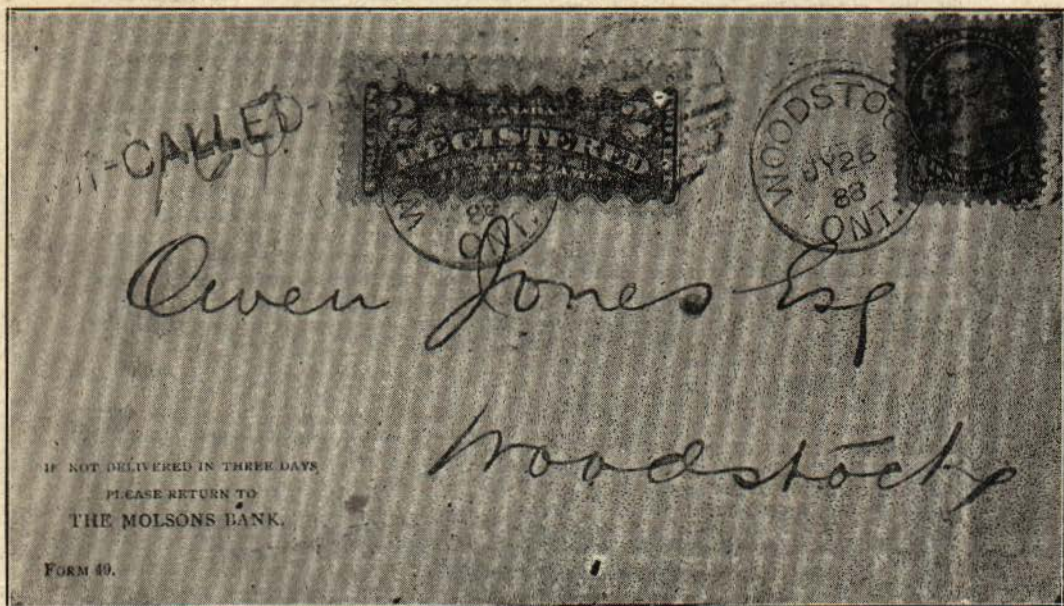 -CALLED
2 REGISTERED 2
WOODSTOC
JY 26
88
ONT.
W
88
ONT.
Owen Jones Esq
Woodstock
IF NOT DELIVERED IN THREE DAYS
PLEASE RETURN TO
THE MOLSONS BANK.
FORM 49.